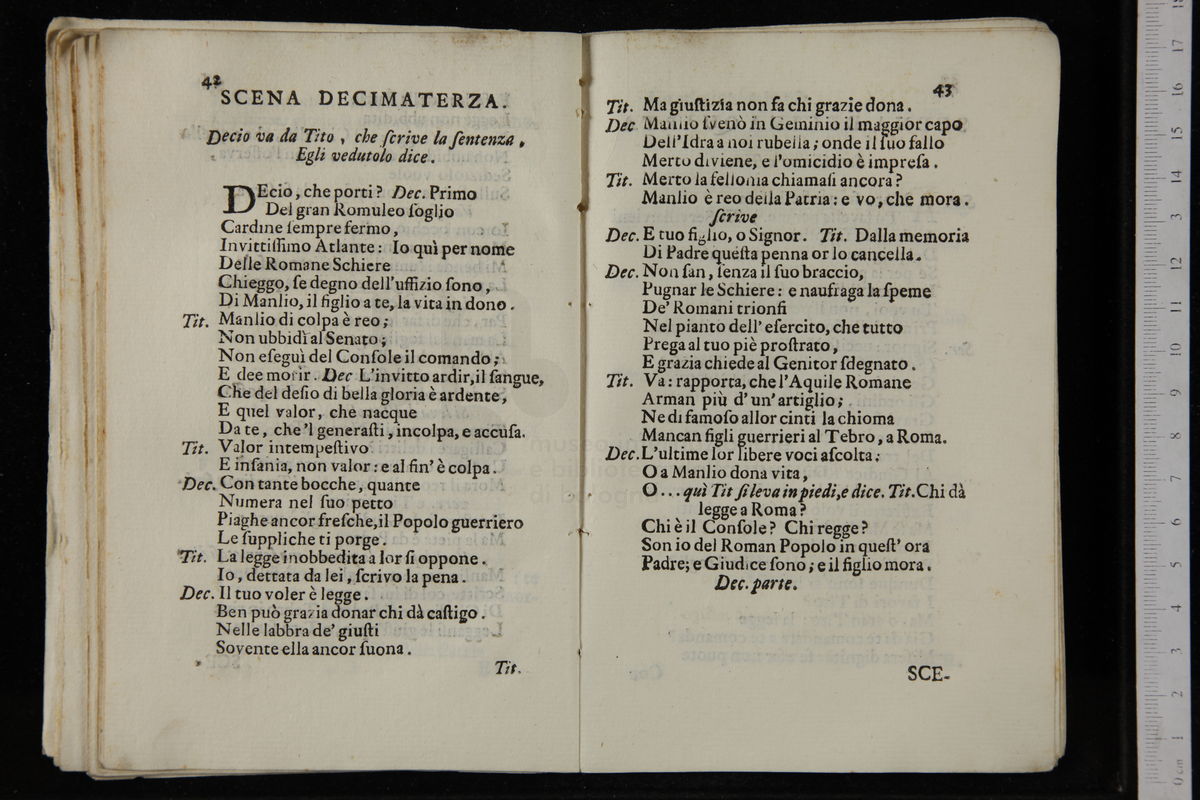 42
SCENA DECIMATERZA.
Decio va da Tito, che ſcrive la ſentenza,
Egli vedutolo dice.
DEcio, che porti? Dec. Primo
Del gran Romuleo ſoglio
Cardine ſempre fermo,
Invittiſſimo Atlante: Io quì per nome
Delle Romane Schiere
Chieggo, ſe degno dell'uffizio ſono,
Di Manlio, il figlio a te, la vita in dono.
Tit. Manlio di colpa è reo;
Non ubbidì al Senato;
Non eſeguì del Conſole il comando;
E dee morir. Dec L'invitto ardir, il ſangue,
Che del deſio di bella gloria è ardente,
E quel valor, che nacque
Da te, che'l generaſti, incolpa, e accuſa.
Tit. Valor intempeſtivo
E inſania, non valor: e al fin' è colpa.
Dec. Con tante bocche, quante
Numera nel ſuo petto
Piaghe ancor freſche, il Popolo guerriero
Le ſuppliche ti porge.
Tit. La legge inobbedita a lor ſi oppone.
Io, dettata da lei, ſcrivo la pena.
Dec. Il tuo voler è legge.
Ben può grazia donar chi dà caſtigo.
Nelle labbra de' giuſti
Sovente ella ancor ſuona.
Tit.
43
Tit. Ma giuſtizia non fa chi grazie dona.
Dec Manlio ſvenò in Geminio il maggior capo
Dell'Idra a noi rubella; onde il ſuo fallo
Merto diviene, e l'omicidio è impreſa.
Tit. Merto la fellonia chiamaſi ancora?
Manlio è reo della Patria: e vo, che mora.
ſcrive
Dec. E tuo figlio, o Signor. Tit. Dalla memoria
Di Padre queſta penna or lo cancella.
Dec. Non ſan, ſenza il ſuo braccio,
Pugnar le Schiere: e naufraga la ſpeme
De' Romani trionfi
Nel pianto dell' eſercito, che tutto
Prega al tuo piè proſtrato,
E grazia chiede al Genitor ſdegnato.
Tit. Va: rapporta, che l'Aquile Romane
Arman più d' un' artiglio;
Ne di famoſo allor cinti la chioma
Mancan figli guerrieri al Tebro, a Roma.
Dec. L'ultime lor libere voci aſcolta:
O a Manlio dona vita,
O... quì Tit ſi leva in piedi, e dice. Tit. Chi dà
legge a Roma?
Chi è il Conſole? Chi regge?
Son io del Roman Popolo in queſt' ora
Padre; e Giudice ſono; e il figlio mora.
Dec. parte.
SCE-